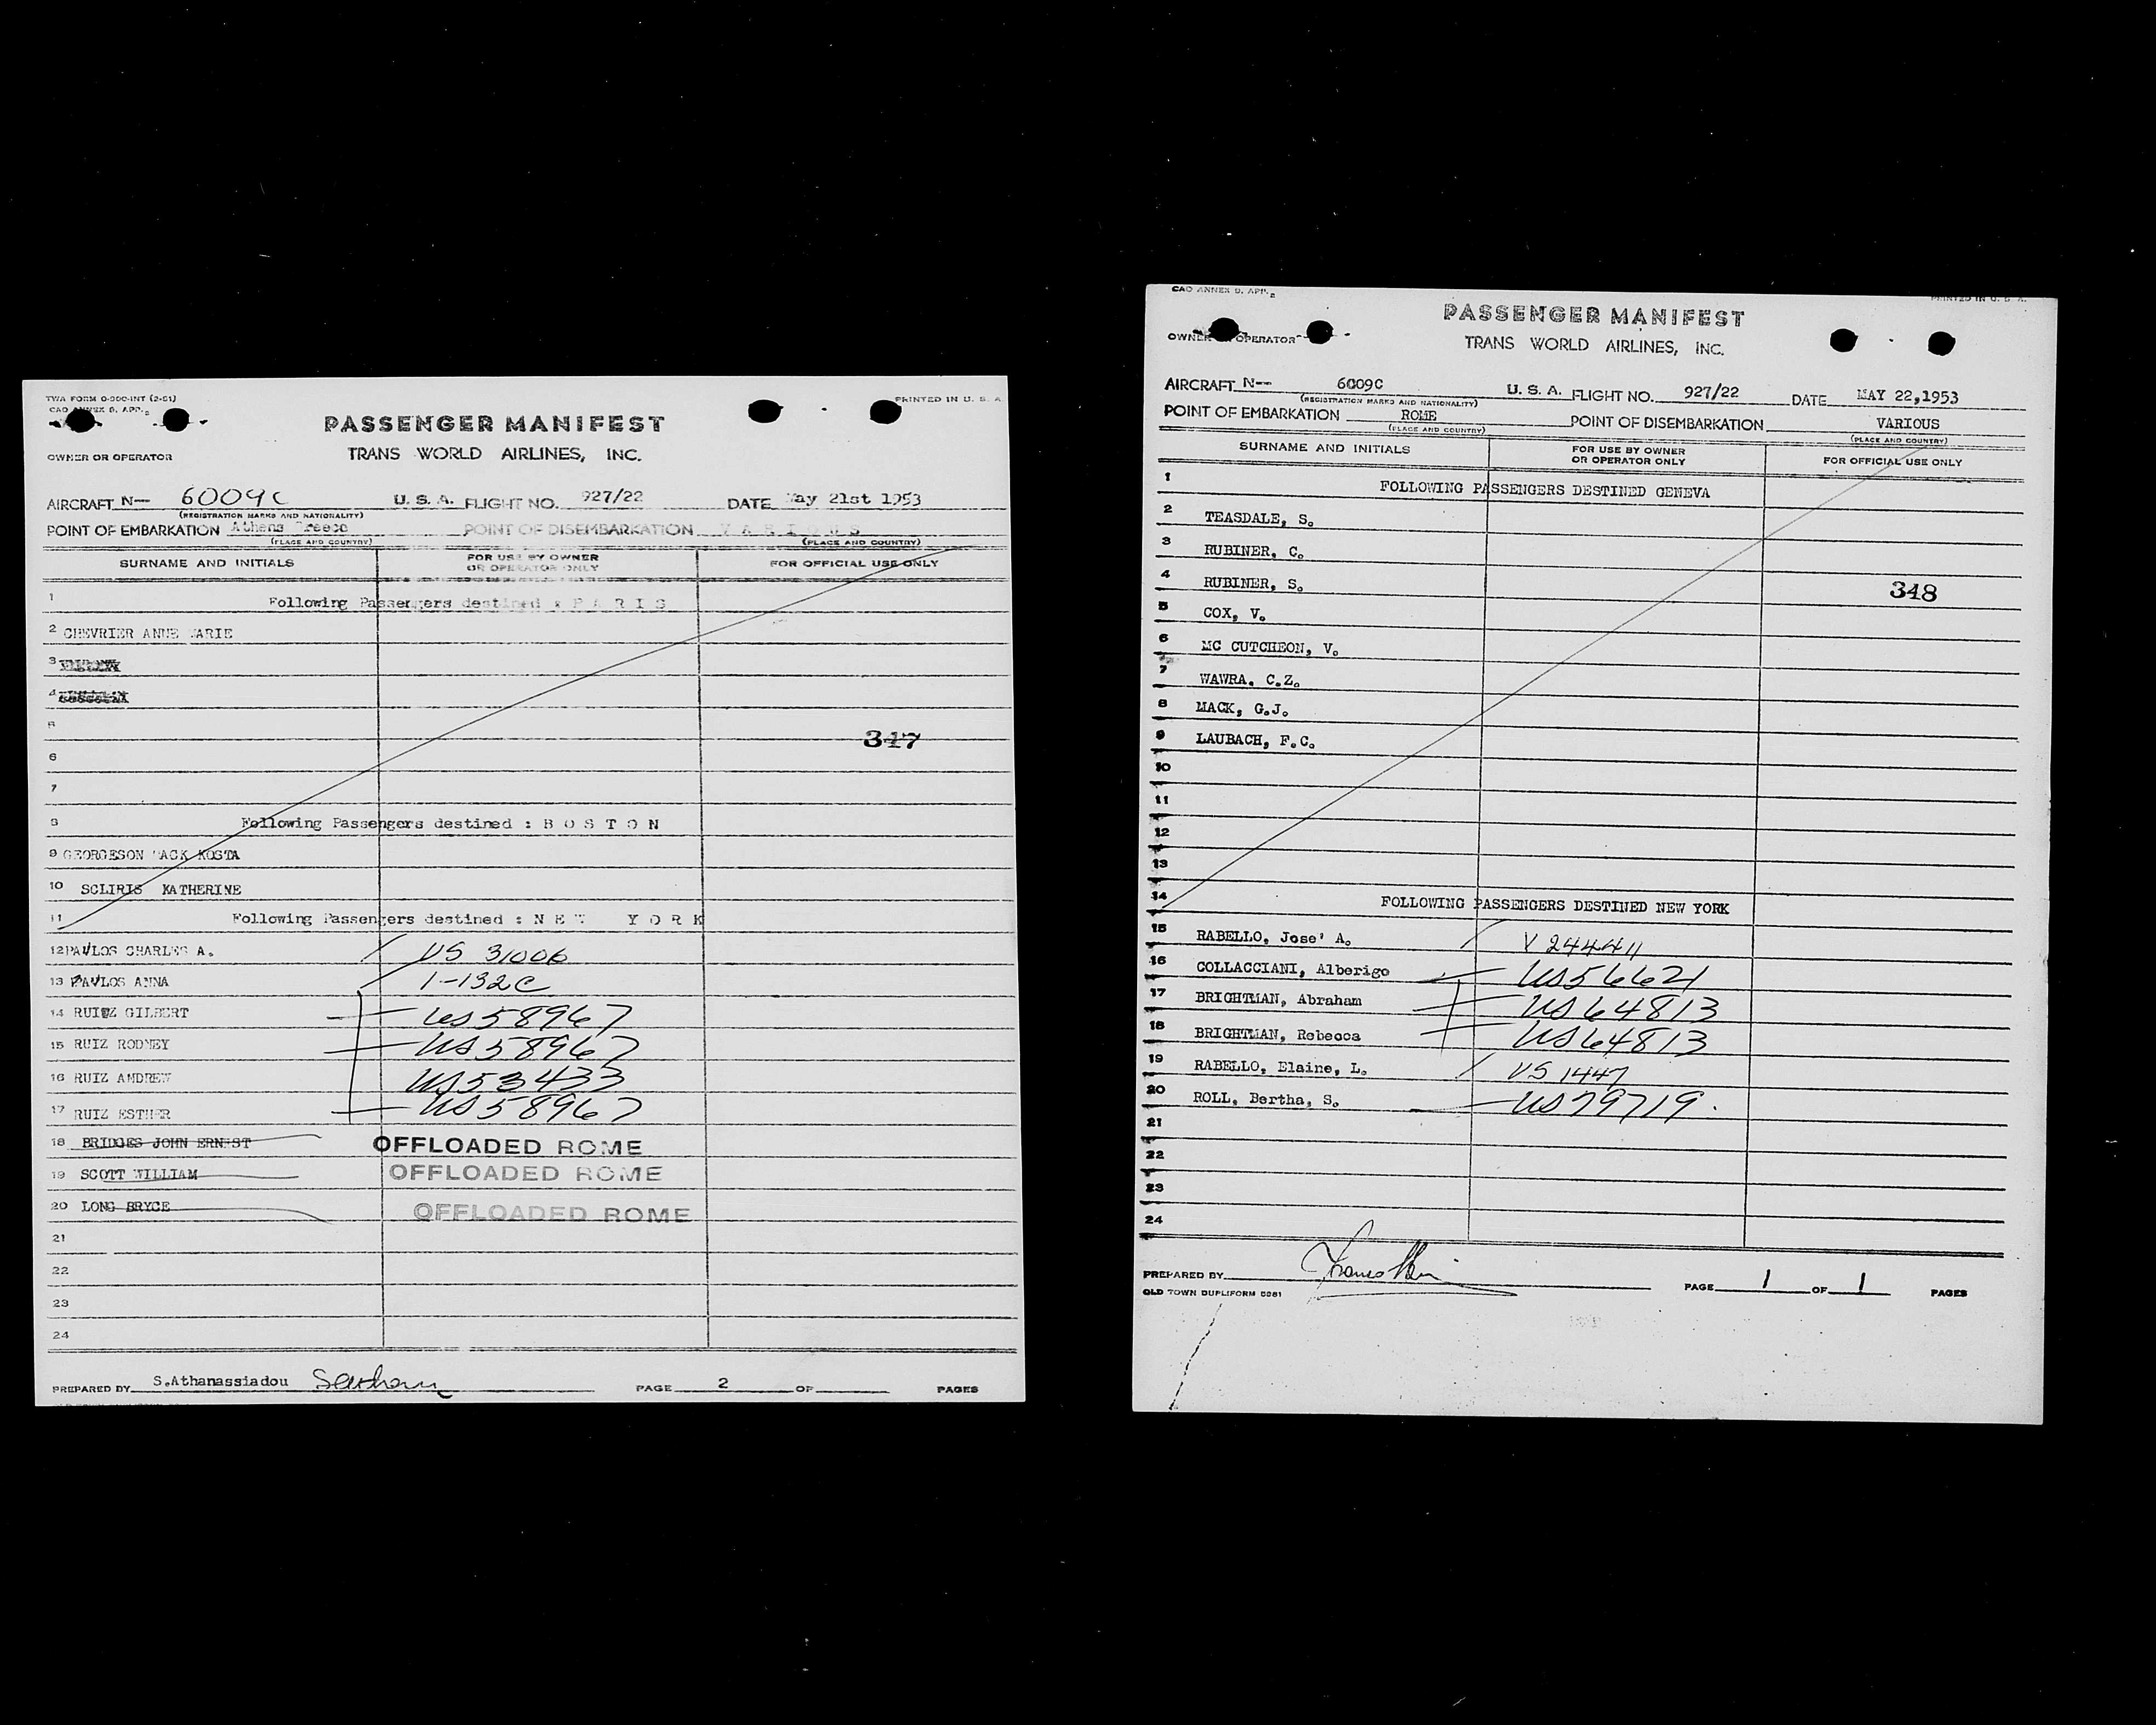 TWA FORM O-300-INT (2-51)
PRINTED IN U. S. A.
PASSENGER MANIFEST
TRANS WORLD AIRLINES, INC.
OWNER OR OPERATOR
AIRCRAFT N-- 6009C U. S. A. FLIGHT NO. 927/22 DATE May 21st 1953
(REGISTRATION MARKS AND NATIONALITY)
POINT OF EMBARKATION Athens Greece POINT OF DISEMBARKATION V A R I O U S
(PLACE AND COUNTRY) (PLACE AND COUNTRY)
SURNAME AND INITIALS FOR USE BY OWNER OR OPERATOR ONLY FOR OFFICIAL USE ONLY
1 Following Passengers destined : P A R I S
2 CHEVRIER ANNE MARIE
3
4
5
347
6
7
8 Following Passengers destined : B O S T O N
9 GEORGESON MACK KOSTA
10 SCLIRIS KATHERINE
11 Following Passengers destined : N E W Y O R K
12 PAVLOS CHARLES A. / US 31006
13 PAVLOS ANNA 1-132C
14 RUIZ GILBERT US58967
15 RUIZ RODNEY US58967
16 RUIZ ANDREW US53433
17 RUIZ ESTHER US58967
18 BRIDGES JOHN ERNEST OFFLOADED ROME
19 SCOTT WILLIAM OFFLOADED ROME
20 LONG BRYCE OFFLOADED ROME
21
22
23
24
PREPARED BY S.Athanassiadou PAGE 2 OF PAGES
CAO ANNEX 9, APP. 2
PRINTED IN U. S. A.
PASSENGER MANIFEST
OWNER OR OPERATOR
TRANS WORLD AIRLINES, INC.
AIRCRAFT N-- 6009C U. S. A. FLIGHT NO. 927/22 DATE MAY 22,1953
(REGISTRATION MARKS AND NATIONALITY)
POINT OF EMBARKATION ROME POINT OF DISEMBARKATION VARIOUS
(PLACE AND COUNTRY) (PLACE AND COUNTRY)
SURNAME AND INITIALS FOR USE BY OWNER OR OPERATOR ONLY FOR OFFICIAL USE ONLY
1 FOLLOWING PASSENGERS DESTINED GENEVA
2 TEASDALE, S.
3 RUBINER, C.
4 RUBINER, S. 348
5 COX, V.
6 MC CUTCHEON, V.
7 WAWRA, C.Z.
8 MACK, G.J.
9 LAUBACH, F.C.
10
11
12
13
14 FOLLOWING PASSENGERS DESTINED NEW YORK
15 RABELLO, Jose' A. / V 244411
16 COLLACCIANI, Alberigo US56621
17 BRIGHTMAN, Abraham US64813
18 BRIGHTMAN, Rebecca US64813
19 RABELLO, Elaine, L. / US 1447
20 ROLL, Bertha, S. US79719.
21
22
23
24
PREPARED BY PAGE 1 OF 1 PAGES
OLD TOWN DUPLIFORM 5081